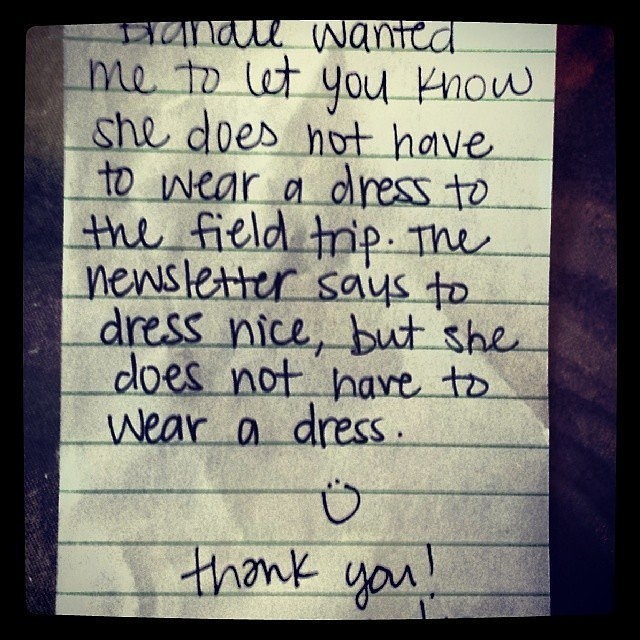 wanted
me to let you know
she does not have
to wear a dress to
the field trip. The
newsletter says to
dress nice, but she
does not have to
wear a dress.
thank you!